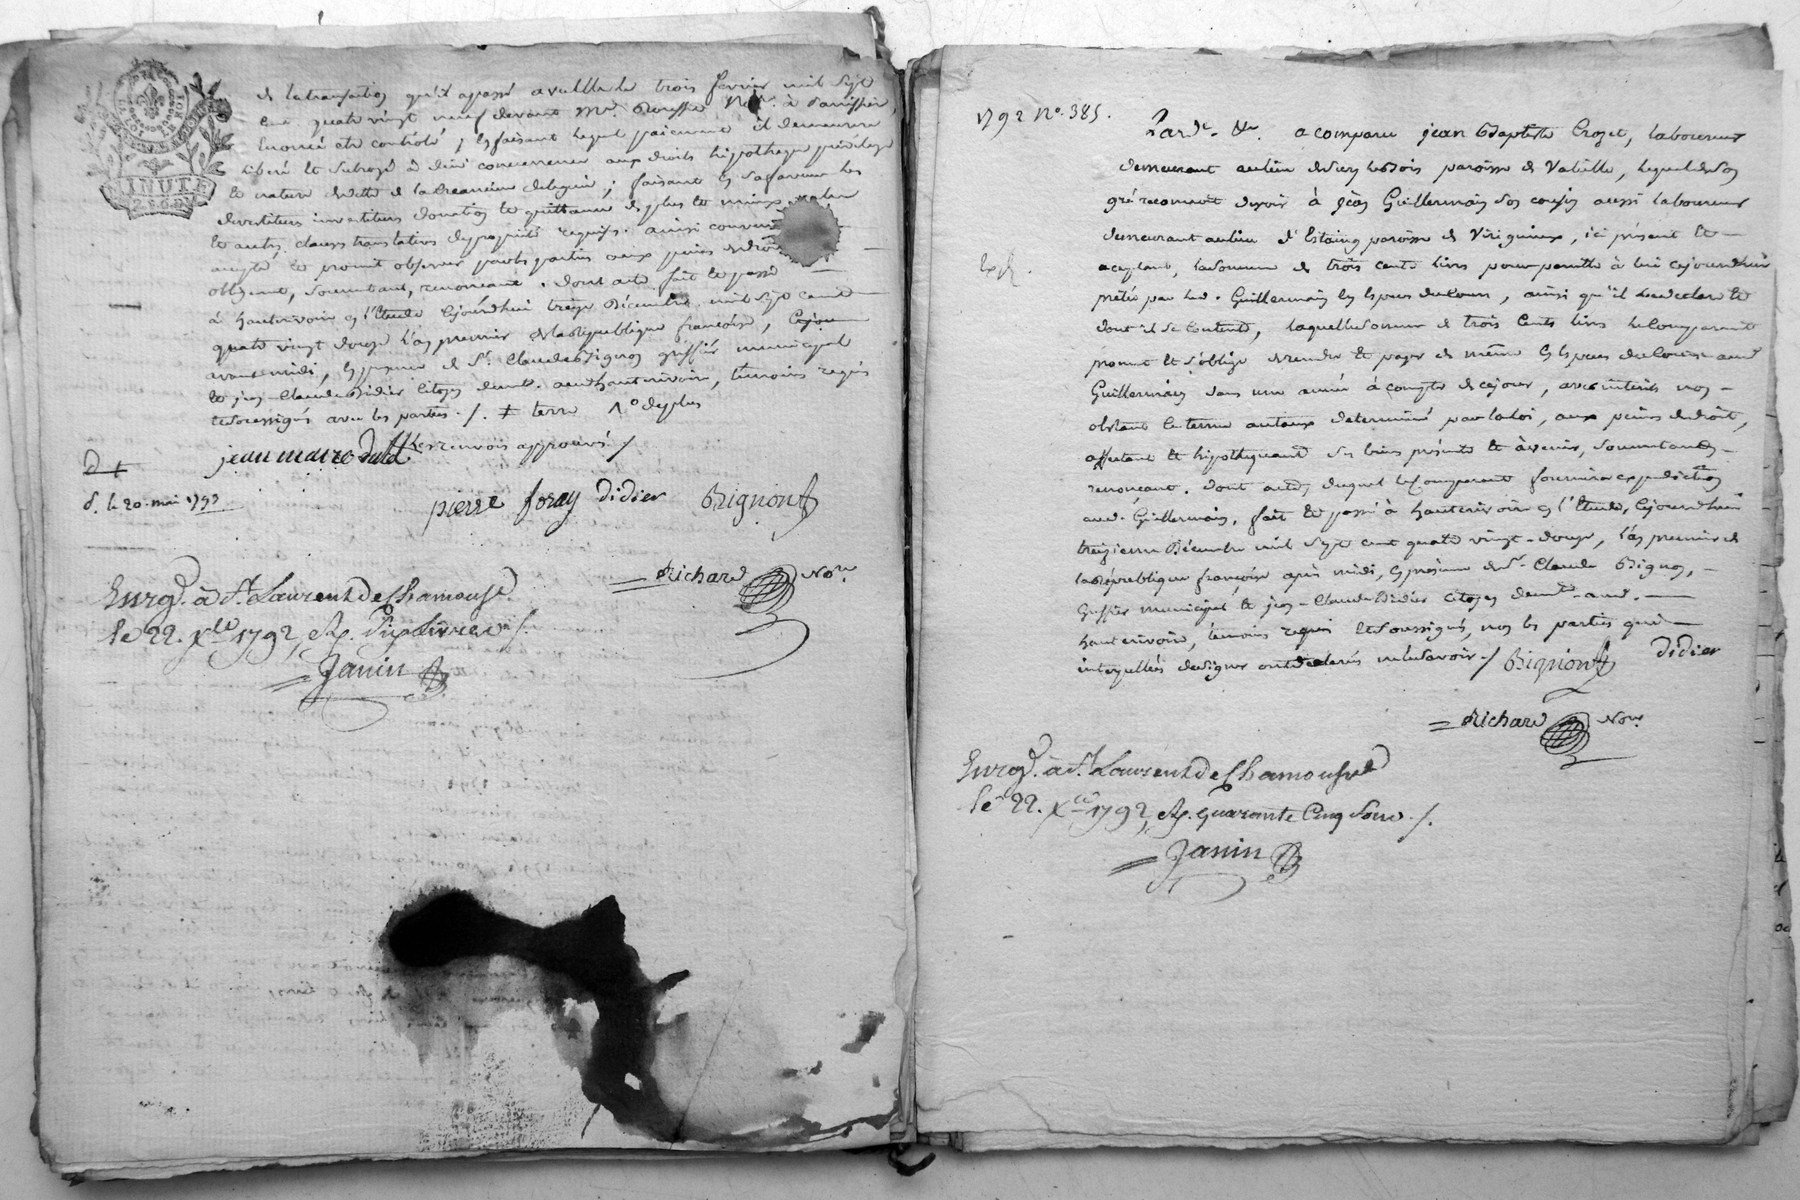 MINUTE
de la transaction qu'il a passé avec le trois février mil sept
cent quatre vingt neuf devant Me. Nore. à
énoncée être contrôlé, en faisant lequel paiement il demeurera
libéré et subrogé à due concurrence aux droits hipotheque privilege
et nature de dette de la creanciere ; faisant en sa faveur les
devestiture investiture donation et quittance de plus et mieux valoir
et autres clauses translatives de propriété requises. ainsi convenu
accepté et promit observer par les parties aux peines de droit
obligeant, soumettant, renonceant. dont acte fait et passé
à hauterivoire en l'Etude cejourdhui treize Décembre mil sept cent
quatre vingt douze l'an premier de la Republique françoise,
avant midi, en presence de Sr. Claude Bignon greffier municipal
et jean-Claude Didier Citoyen demt. aud. hauterivoire, témoins requis
et soussignés avec les parties ./. ≠ terre 1o de plus
jean marc les renvois approuvés /
D +
d. le 20. mai 1793
pierre foray Didier Bignon
Richard Nore.
Enrgé. à St. Laurent de Chamousset
le 22. Xbre 1792, Rç. Dix Livres ./.
Janin
1792 No. 385.
Pardt. &r. a comparu jean Baptiste Crozet, laboureur
demeurant au lieu de paroisse de Valeille, lequel de son
gré reconnoit devoir à jean Guillermain son cousin aussi laboureur
demeurant au lieu d'Estaing paroisse de Virigneux, ici présent et
acceptant, la somme de trois cents livres pour pareille à lui cejourdhui
prêtée par led. Guillermain en espèces de cours, ainsi qu'il le declare et
dont il se contente, laquelle somme de trois cents livres le comparant
promet et s'oblige de rendre et payer de même en espèces de cours aud.
Guillermain dans une année à compter de cejour, avec intérêts non-
obstant le terme au taux déterminé par la loi, aux peines de droit,
affectant et hipothequant ses biens présents et àvenir, soumettant
renonceant. dont acte, duquel le Comparant fournira expedition
aud. Guillermain, fait et passé à hauterivoire en l'Etude, cejourdhui
treizieme Décembre mil sept cent quatre vingt-douze, l'an premier de
la République françoise après midi, en présence de Sr. Claude Bignon,
Greffier municipal et jean-Claude Didier Citoyen demt. aud.
hauterivoire, témoins requis et soussignés, non les parties qui
interpellées de signer ont déclarés ne le savoir ./. Bignon Didier
Exp.
Richard Nore.
Enrgé. à St. Laurent de Chamousset
le 22. Xbre 1792, Rç. quarante Cinq Sous ./.
Janin